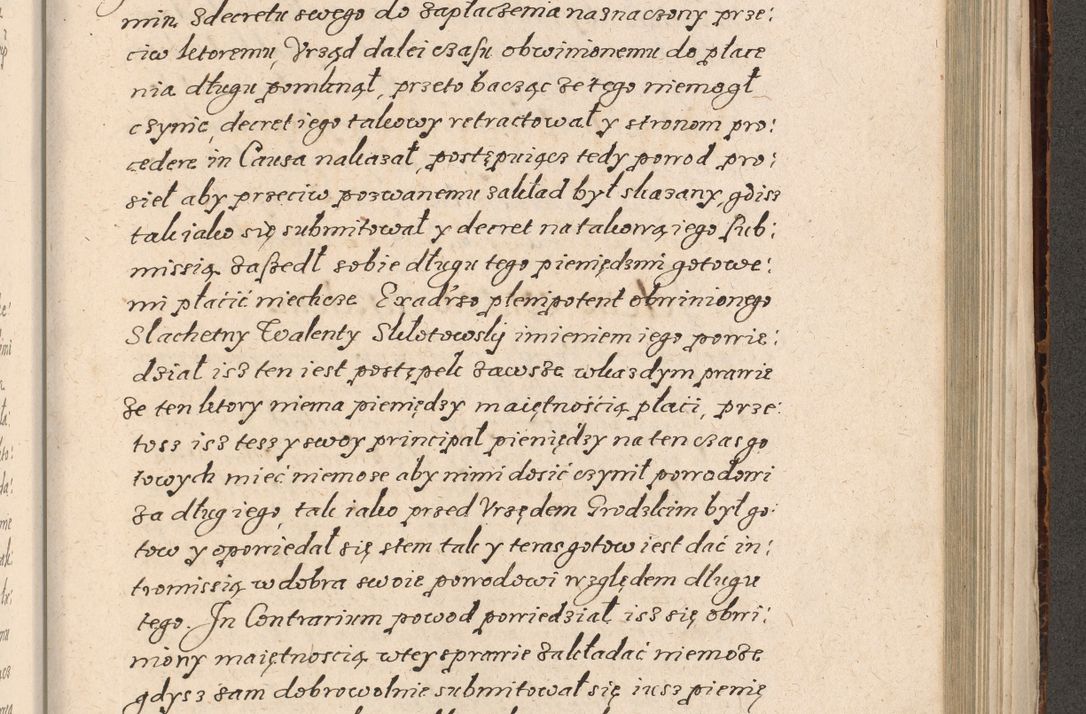 min zdecretu swego do zapłaczenia naznaczony prze:
ciw ktoremu, Vrząd dalei czasu obwinionemu do płace
nia długu pomknął, przeto bacząc że tego niemogł
czynić, decret iego takowy retractował y stronom pro:
cedere in Causa nakazał, postępuiącz tedy powod pro:
sieł aby przeciw pozwanemu zakład był skazany, gdisz
tak iako się submitował y decret na takową iego sub:
missią zaszedł sobie długu tego pieniędzmi gotowe:
mi płacić niechcze Exadrso plenipotent obwinionego
Slachetny Walenty Skłotowskÿ imieniem iego powie:
dział isz ten iest postępek zawsze wkazdym prawie
że ten ktory niema pieniędzy maiętnością płaci, prze:
tosz isz tesz y swoy principał pieniędzy na ten czas go
towych mieć niemoże aby nimi dosić czynił powodowi
za dług iego, tak iako przed Vrzędem Grodzkim był go:
tow y opowiedał się stem tak y teras gotow iest dać in:
tromissią w dobra swoie powodowi względem długu
tego. In Contrarium powod powiedział isz się obwi:
niony maiętnoscią wtey sprawie zakładać niemoże
gdysz sam dobrowolnie submitował się iusz pienię